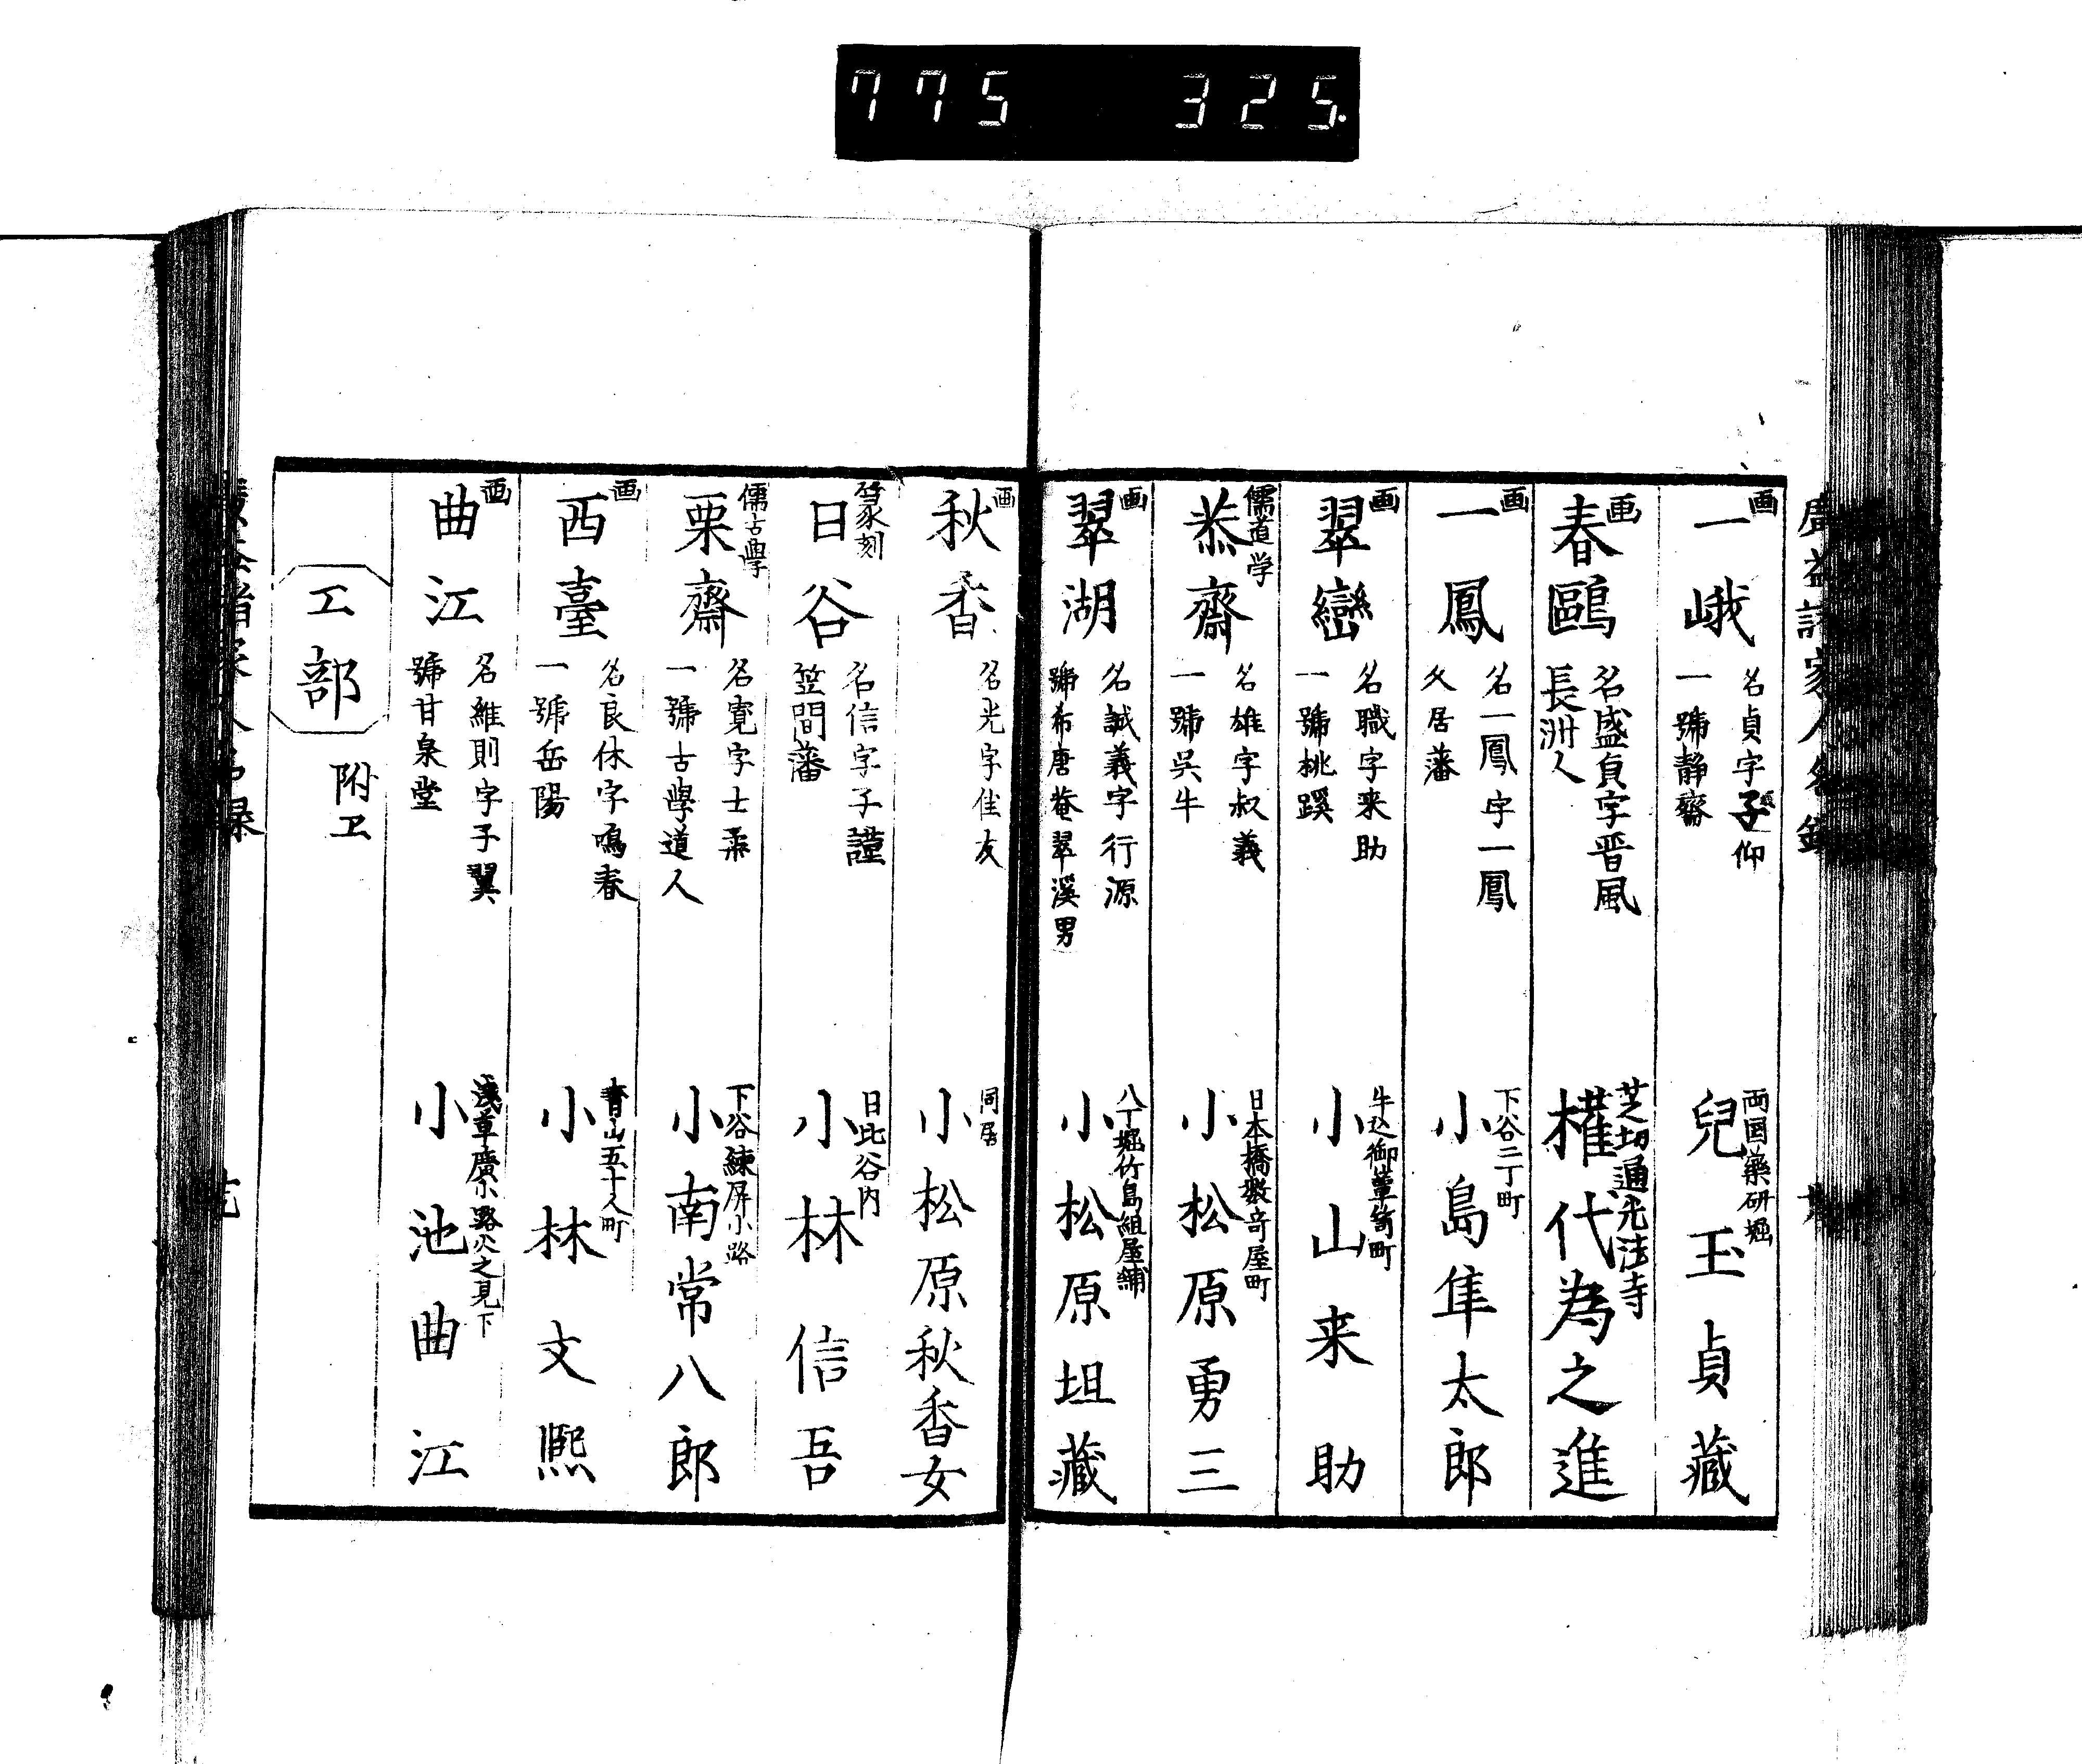 775 325.
画
一峨
名貞字子仰
一號静齋
両国藥研堀
兒玉貞藏
画
春鷗
名盛貞字晋風
長洲人
芝切通光法寺
権代為之進
画
一鳳
名一鳳字一鳳
久居藩
下谷二丁町
小島隼太郎
画
翠巒
名職字来助
一號桃蹊
牛込御簞笥町
小山来助
儒道学
恭齋
名雄字叔義
一號呉牛
日本橋数寄屋町
小松原勇三
画
翠湖
名誠義字行源
號布唐菴翠溪男
八丁堀竹島組屋鋪
小松原坦藏
画
秋香
名光字隹友
同居
小松原秋香女
篆刻
日谷
名信字子謹
笠間藩
日比谷内
小林信吾
儒古學
栗齋
名寛字士栗
一號古學道人
下谷練屏小路
小南常八郎
画
西臺
名良休字鳴春
一號岳陽
青山五十人町
小林文熙
画
曲江
名維則字子翼
號甘泉堂
浅草廣小路火之見下
小池曲江
工部
附ヱ